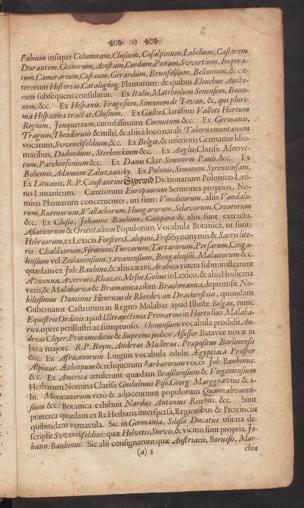 Fabium insuper Columnam, Clusium, Cæsalpinum, Lobelium, Castorem
Durantem, Gesnerum, Acostam, Cordum, Ponam, Swertium, Impera-
tum, Camerarium, Costæum, Gerardum, Brunfelsium, Bellonium, & cæ-
terorum Historias, Catalogósq; Plantarum: de quibus Elenchus Autho-
rum subsequens consulatur. Ex Italis, Matthiolum Senensem, Bocco-
num, &c. Ex Hispanis, Fragosum, Simonem de Tovar, &c, qui pluri-
ma Hispanica tractat, Clusium. Ex Gallis, Clarissimi Valloti Hortum
Regium, Jonquetum, curiosissimum Cornutum &c. Ex Germanis,
Tragum, Theodorum è mihi, & alii ea loco natali Tabernæmontanum
vocatum, Swenckfeldium, &c. Ex Belgis, & inferioris Germaniæ Idio-
matibus, Dodonæum, Sterbeeckium &c. Ex Anglis Clariss: Merret-
tum, Parckinsonium &c. Ex Danis Clar. Simonem Pauli. &c. Ex
Bohemis, Adamum Zaluzansky. Ex Polonis, Simonem Syrennium.
Ex Lituanis, R. P. Constantini Szyrwid Dictionarium Polonico-Lati-
no-Lituanicum. Cæterorum Europæorum Sermones proprios, No-
mina Plantarum concernentes, uti sunt: Venedorum, alias Vandalo-
rum, Rutenorum, Wallachorum, Hungarorum, Sclavorum, Croatorum
&c. Ex Clusio, Johanne Bauhino, Calepino & aliis sunt extracta.
Asiaticorum & Orientalium Populorum Vocabula Botanica, uti sunt:
Hebræorum, ex Lexicis Forsteri, Calepini, Fessi Synonymis & Sacris lite-
ris: Chaldæorum, Syrorum, Turcarum, Tartarorum, Persarum, Cinga-
lensium vel Zeilanensium, Javanensium, Bengalensium, Malaicorum &c.
quædam ex Joh: Bauhino, & aliis citavi. Arabica verò subministrarunt
Avicenna, Averroes, Rhazes, Mesue, Golius in Lexico, & alii; Hodierna
verò, & Malabarica & Bramanica, olim Brachmanica, deprompsi No-
bilissimus Dominus Henricus de Rheede van Drackenstein, quondam
Gubernator Castrorum in Regno Malabar apud Illustr: Belgas, nunc
Equestris Ordinis apud Ultrajectinos Primarius in Horto suo Malaba-
rico, opere perillustri ac sumptuoso. Chinensium vocabula produxit, An-
dreas Cleyer, Protomedicus & Supremus judicii Assessor Bataviæ novæ in
Java majore. & R. P. Boym, Andreas Mullerus, Præpositus Berlinensis
&c. Ex Africanorum Linguis vocabula edidit Ægyptiaca Prosper
Alpinus. Æthiopum & reliquorum Barbarorum voces Joh: Bauhinus.
&c. Ex America attulerunt quædam Brasiliensium & Virginiensium
Herbarum Nomina Clariss: Guilielmus Piso, Georg: Marggravius & a-
lii. Mexicanorum verò & adjacentium populorum Quauhnahuacen-
sium &c. Botanica exhibuit Nardus Antonius Recchus. &c. Sunt
præterea quædam ex Re Herbaria interspersa, Regionibus & Provinciis
quibusdam vernacula. Sic in Germania, Silesiæ Ducatui usitata de-
scripsit Swenckfeldius: quæ Helvetis, Suevis, & vicinis sunt propria, Jo-
hann: Bauhinus. Sic alii consignarunt quæ Austriacis, Borussis, Mar-
(a) 2
chia